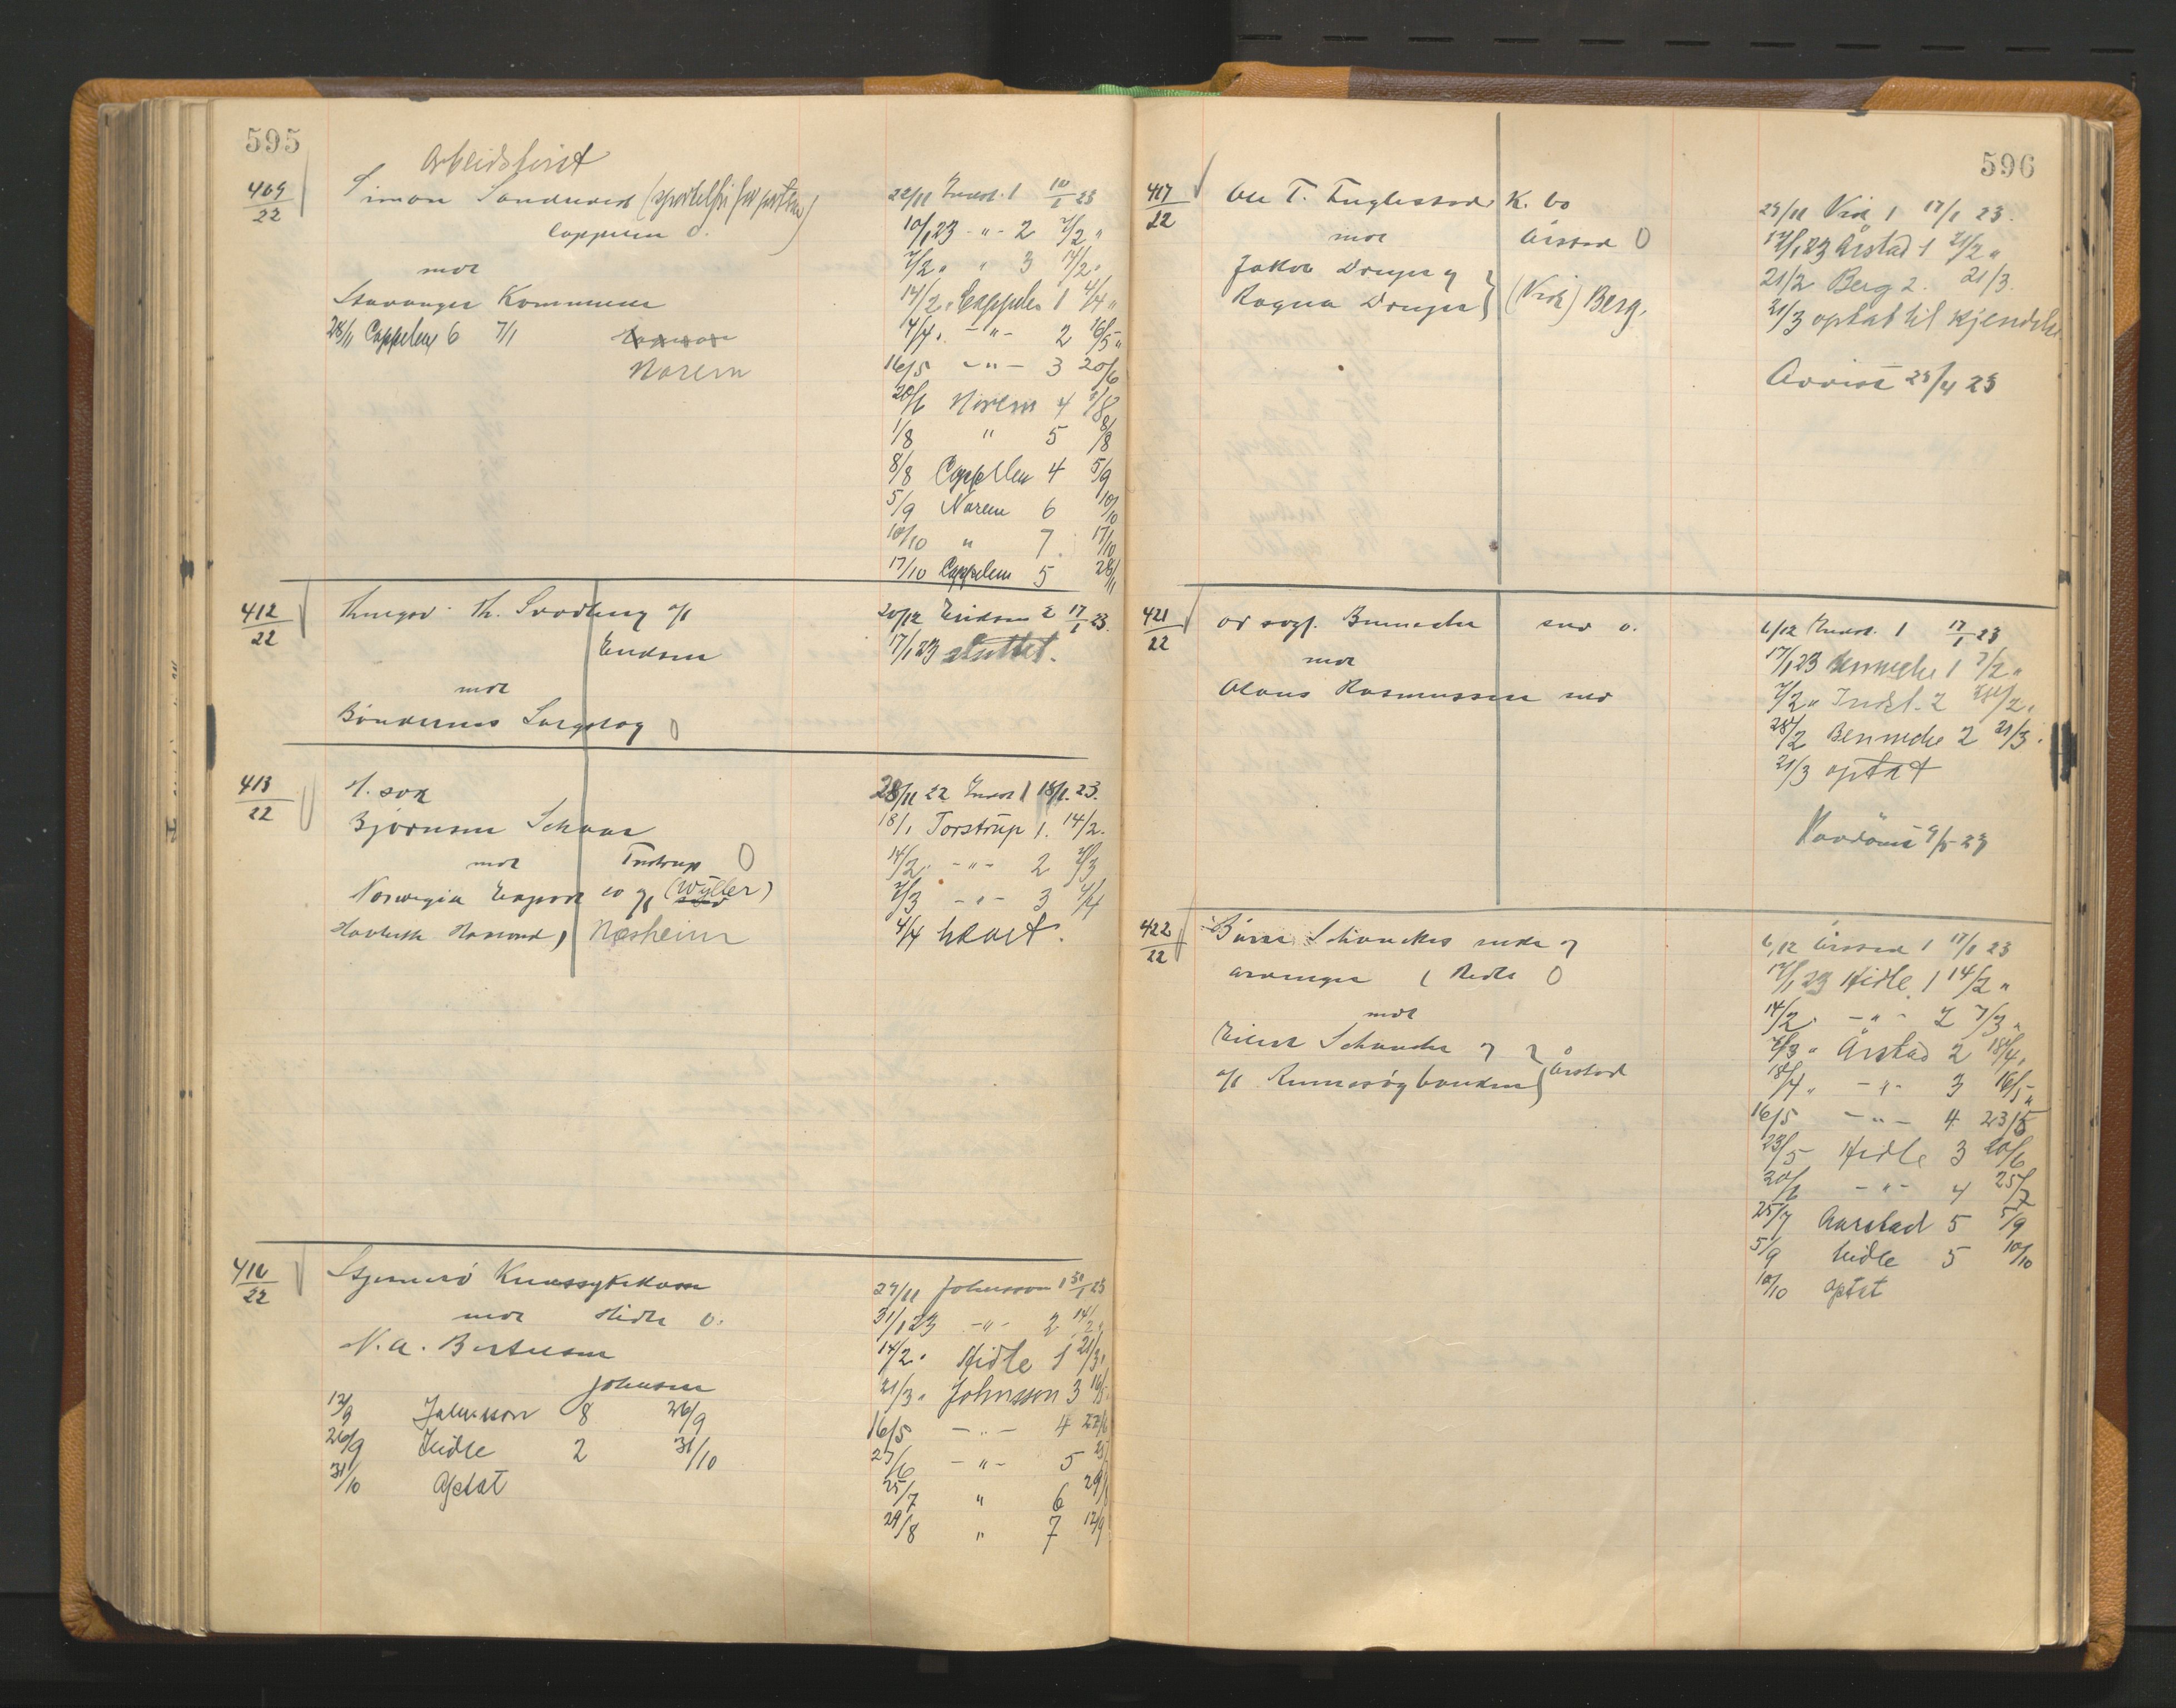 595
Arbeidsfrist
409/22 Simon Sandned
Cappelen 0.
mot
Stavanger Kommune
28/11 Cappelen 6 7/1
Norem
22/11 Indst. 1 10/1 23
10/1 23 -"- 2 7/2 "
7/2 " " 3 14/2 "
14/2 " Cappelen 1 4/4 "
4/4 " -"- 2 16/5 "
16/5 -"- 3 20/6
20/6 Norem 4 1/8
1/8 " 5 8/8
8/8 Cappelen 4 5/9
5/9 Norem 6 10/10
10/10 " 7 17/10
17/10 Cappelen 5 28/11
412/22 Th. Svodberg
Endsen
mot
Bøndernes Salgslag 0
20/12 Endsen 2 17/1 23.
17/1 23 sluttet.
413/22 H. sak
Bjørnsen Schaar
mot Torstrup 0
Norwegian Export co (Wyller)
Næsheim
28/11 22 Indst 1 18/1. 23.
18/1 Torstrup 1. 14/2.
14/2. -"- 2 7/3
7/3 -"- 3 4/4
4/4 hævet.
416/22 Stjernerø Kredssykekasse
mot Hidle 0.
N. A. Bertelsen
Johnsen
12/9 Johnsson 8 26/9
26/9 Hidle 2 31/10
31/10 Optat
27/11 Johnsson 1 31/1 23
31/1 23 -"- 2 14/2 "
14/2 " Hidle 1 21/3 "
21/3 " Johnsson 3 16/5
16/5 -"- 4 27/6
27/6 -"- 5 25/7
25/7 " 6 29/8
29/8 " 7 12/9
596
417/22 Ole T. Fuglestad K. bo
mot Årstad 0
Jakob Dreyer og
Ragna Dreyer } (Vik) Berg.
29/11 Vik 1 17/1 23.
17/1 23 Årstad 1 21/2 "
21/2 Berg 2. 21/3.
21/3 optat til kjendelse
Avvist 25/4 23
421/22 or sagf. Benneche 0.
mot
Olaus Rasmussen
6/12 Indst. 1 17/1 23
17/1 23 Benneche 1 7/2 "
7/2 " Indst. 2 28/2 "
28/2 Benneche 2 21/3.
21/3 optat
422/22 Børre Schanckes enke og
arvinger ( Hidle 0
mot
Eilert Schancke og } Årstad
6/12 Årstad 1 17/1 23
17/1 23 Hidle 1 14/2 "
14/2. -"- 2 7/3 "
7/3 " Årstad 2 18/4 "
18/4 " -"- 3 16/5 "
16/5 -"- 4 23/5
23/5 Hidle 3 20/6
20/6 -"- 4 25/7
25/7 Aarstad 5 5/9
5/9 Hidle 5 10/10
10/10 optat